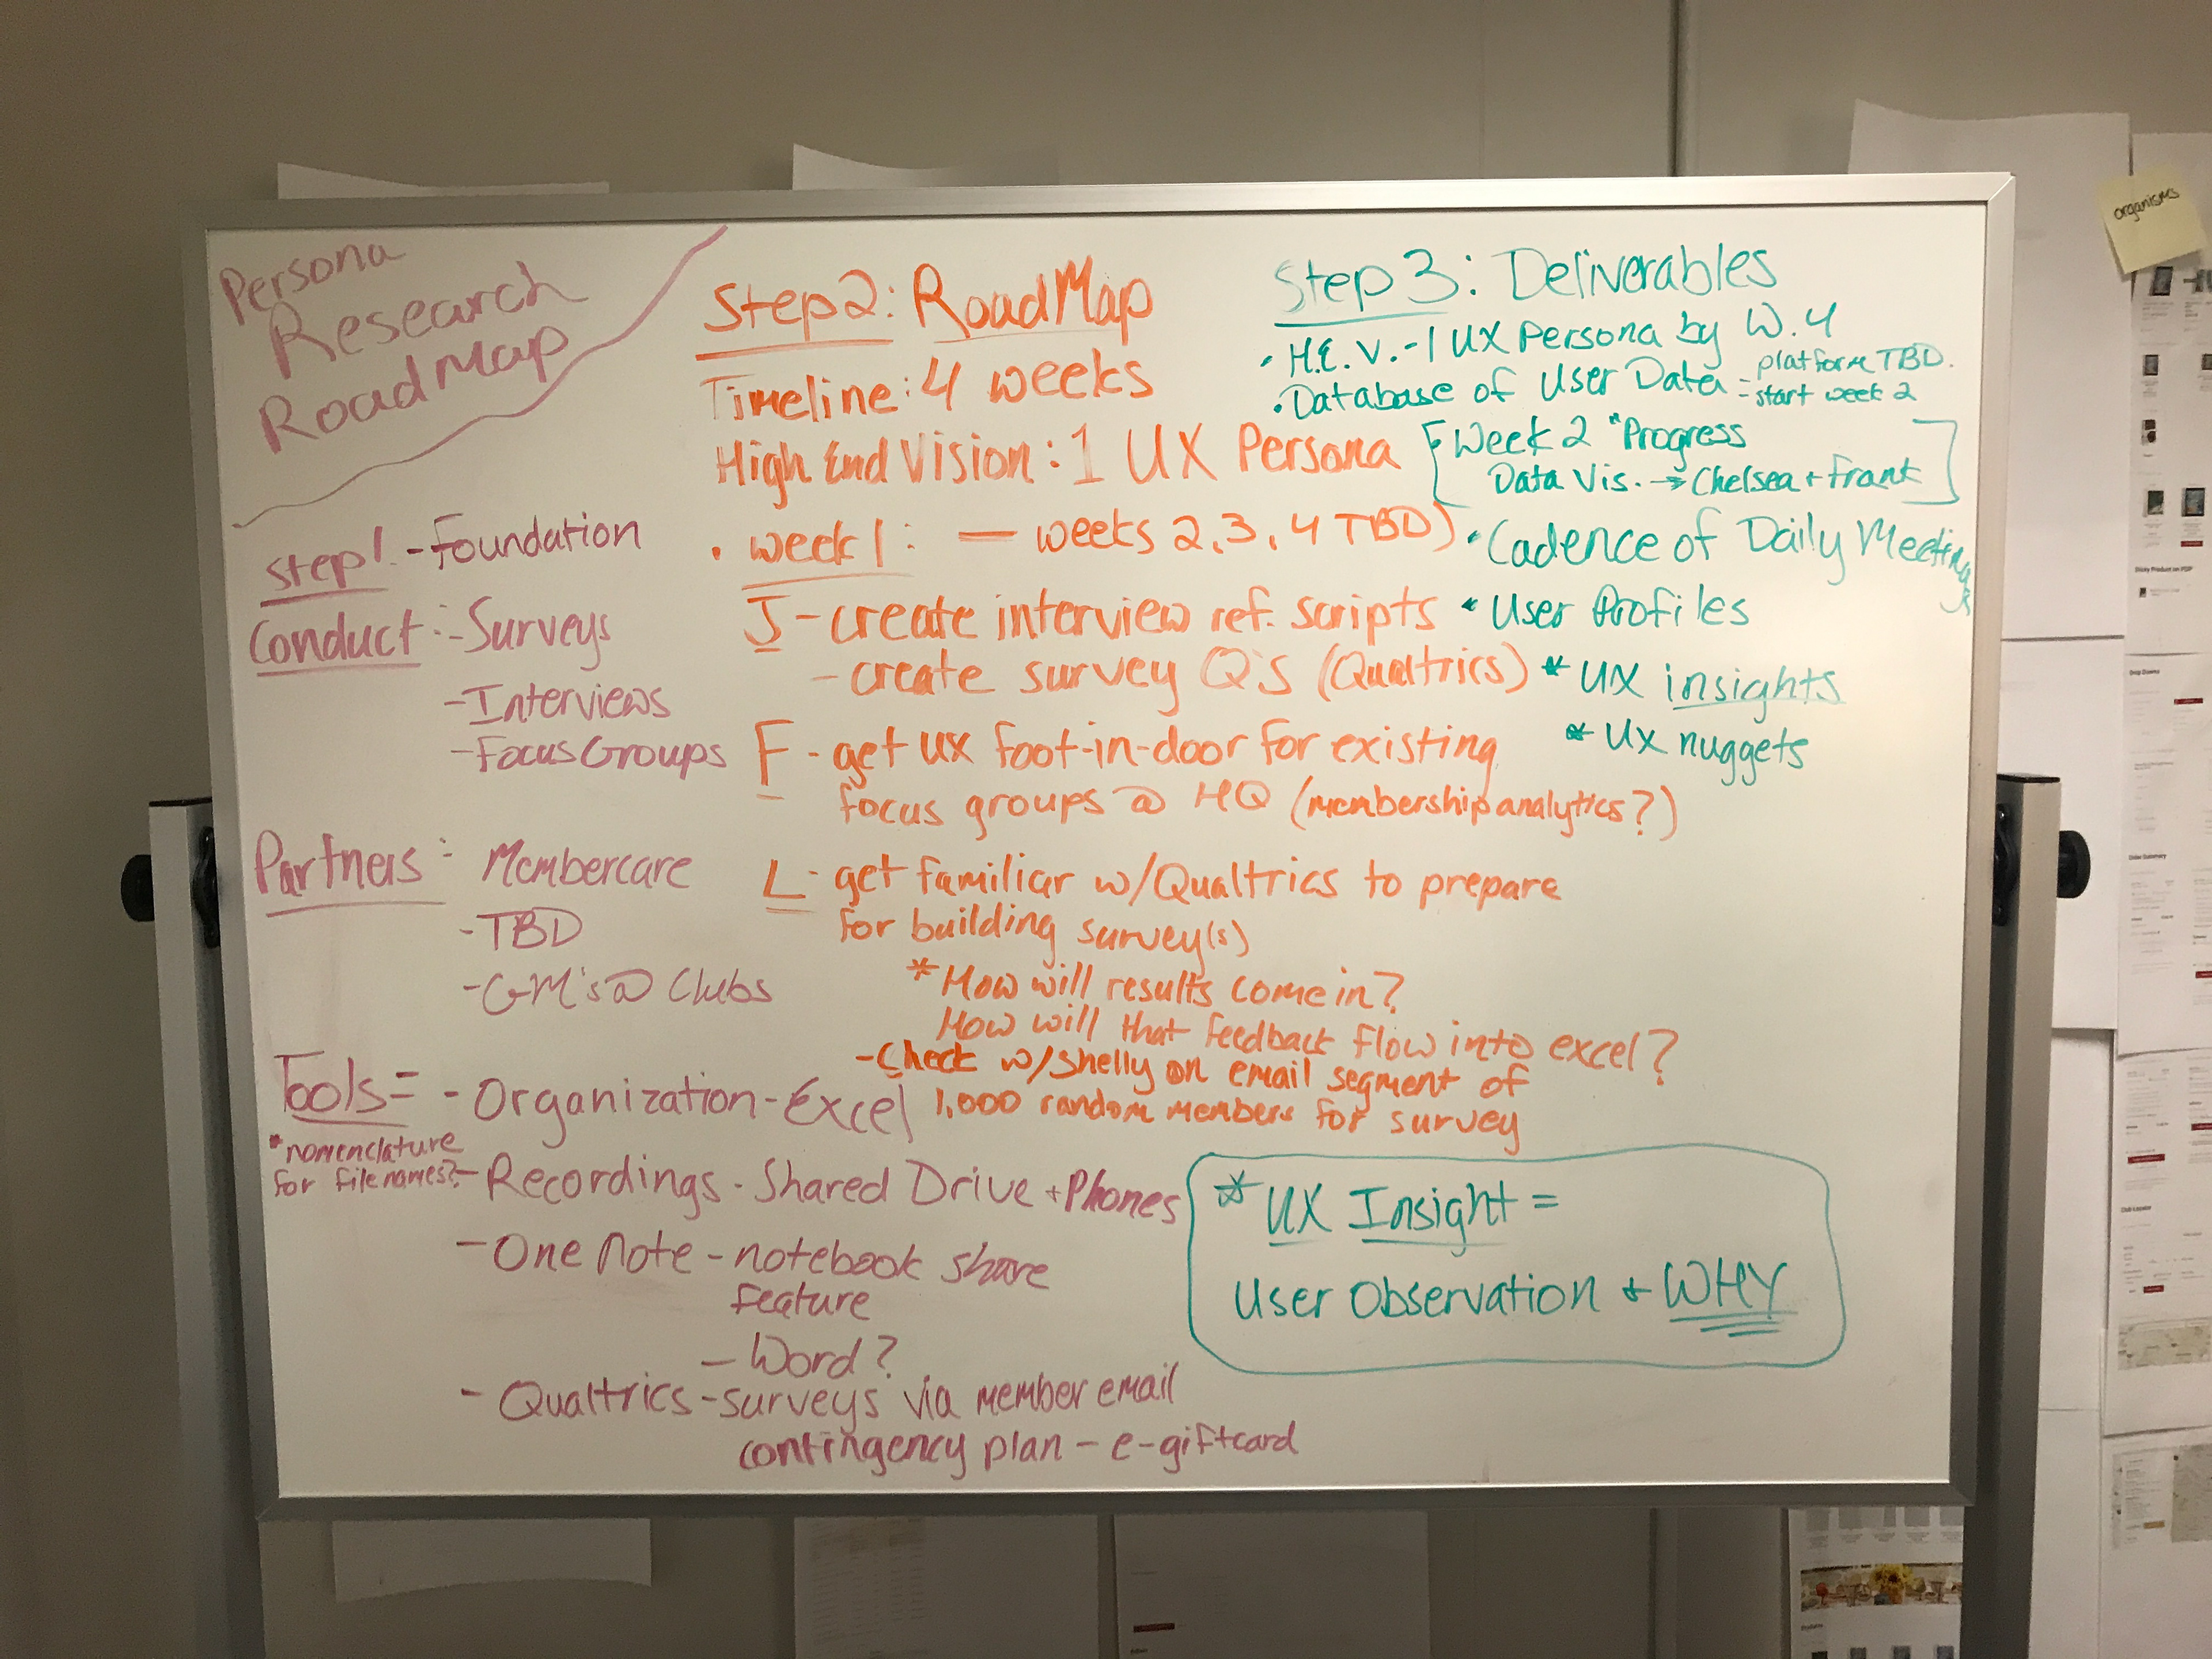 Persona
Research
RoadMap
Step 1 - Foundation
Conduct: - Surveys
- Interviews
- Focus Groups
Partners: Membercare
- TBD
- GM's @ Clubs
Tools = - Organization - Excel
*nomenclature
for filenames?
- Recordings - Shared Drive + Phones
- One Note - notebook share
feature
- Word?
- Qualtrics - surveys via member email
contingency plan - e-giftcard
Step 2: RoadMap
Timeline: 4 weeks
High End Vision: 1 UX Persona
• week 1: — weeks 2, 3, 4 TBD)
J - create interview ref. scripts
- create survey Q's (Qualtrics)
F - get UX foot-in-door for existing
focus groups @ HQ (membership analytics?)
L - get familiar w/Qualtrics to prepare
for building survey(s)
*How will results come in?
How will that feedback flow into excel?
- Check w/Shelly on email segment of
1,000 random members for survey
Step 3: Deliverables
• H.E.V. - 1 UX Persona by W. 4
• Database of User Data = platform TBD.
= start week 2
[Week 2 "Progress
Data Vis. → Chelsea + Frank]
• Cadence of Daily Meetings
• User Profiles
* UX insights
* UX nuggets
* UX Insight =
User Observation + WHY
organisms
Sticky Product on PDP
Drop Downs
Order Summary
Club Locator